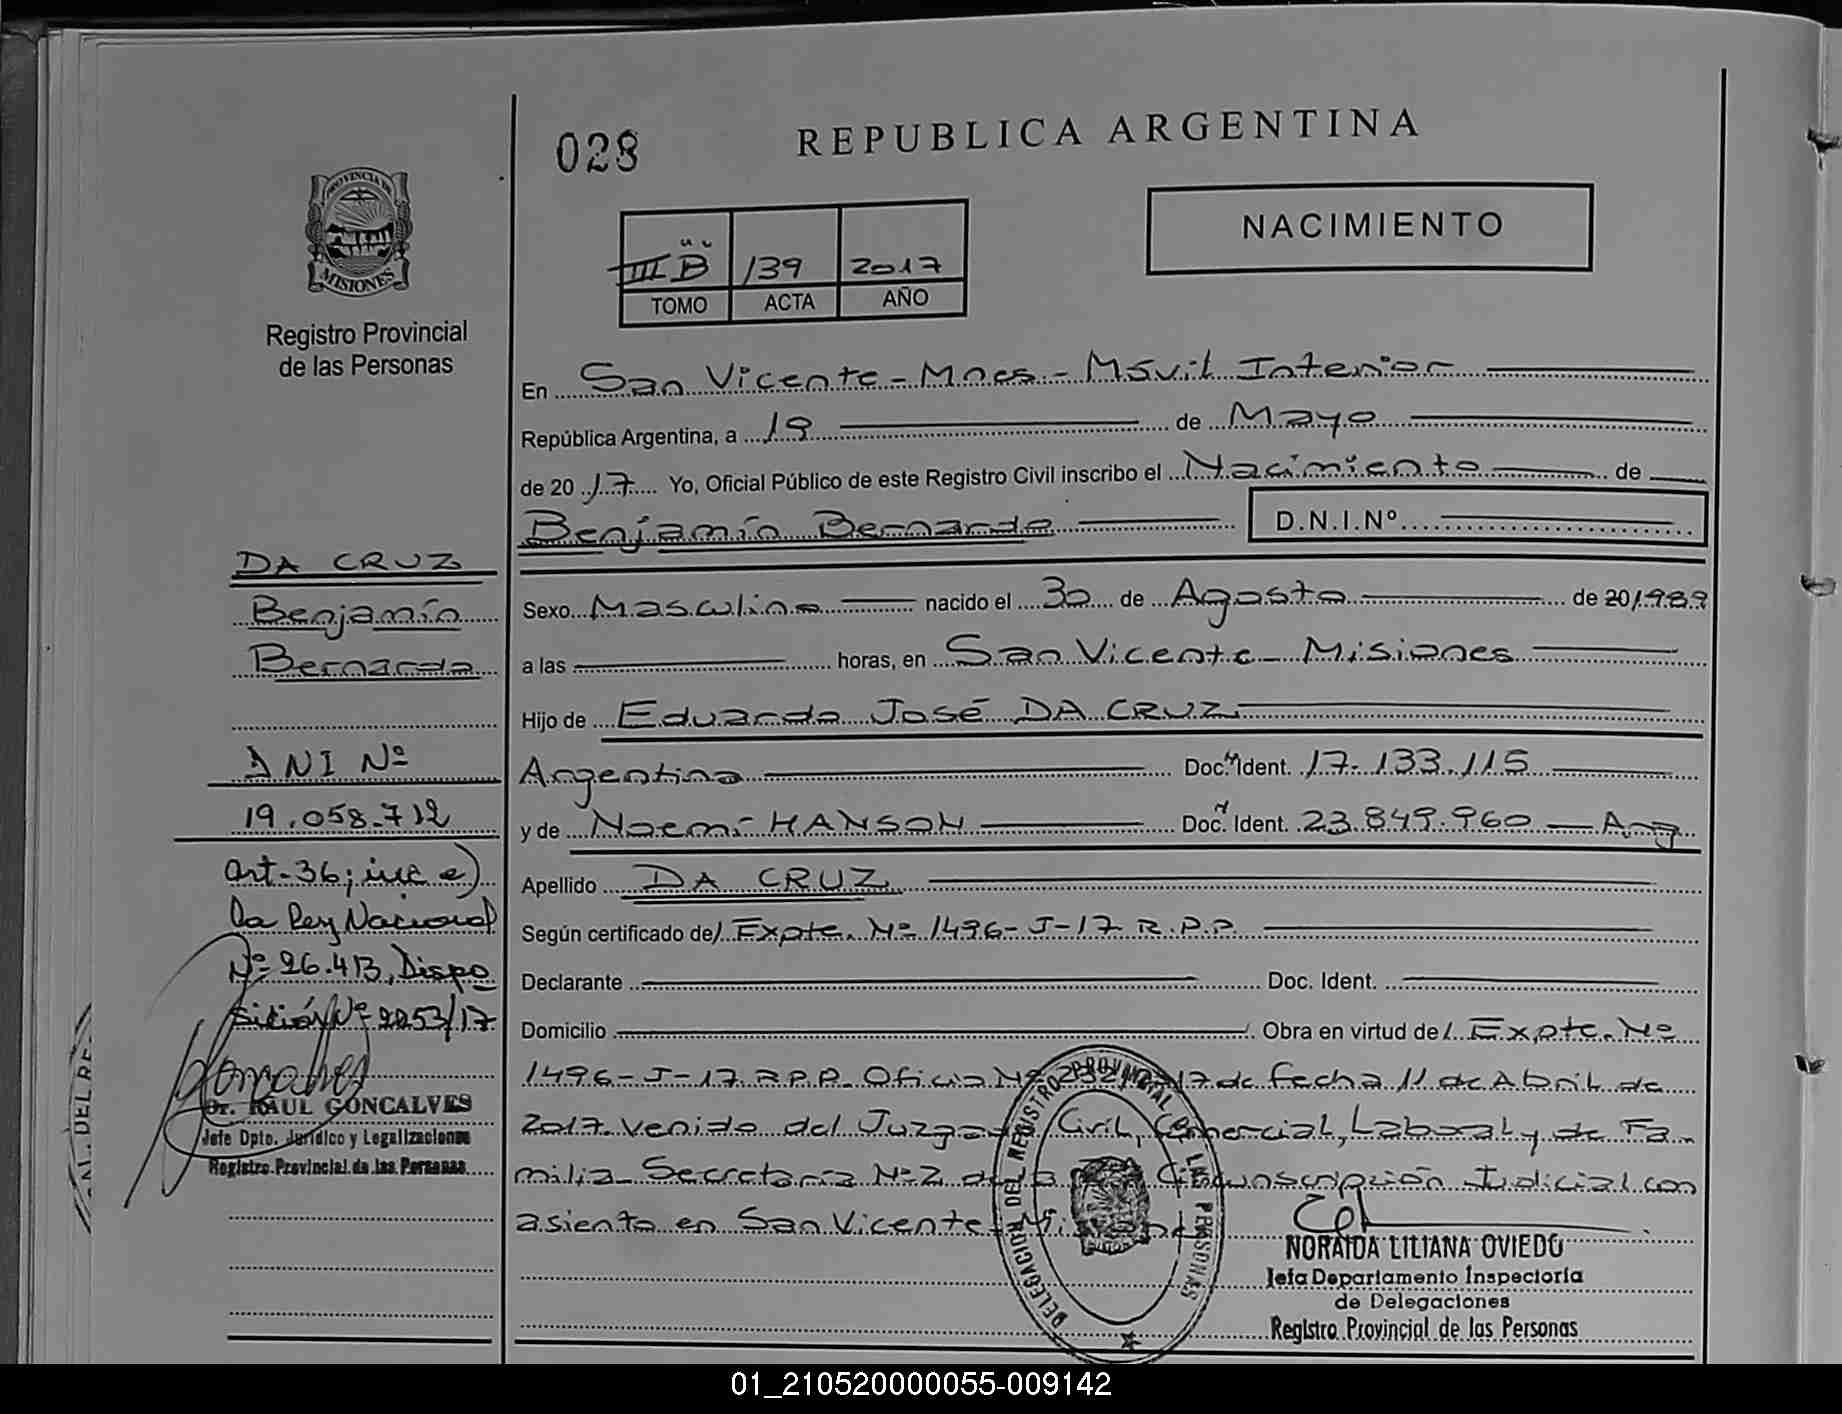 028
REPUBLICA ARGENTINA
NACIMIENTO
III B 139 2017
TOMO ACTA AÑO
PROVINCIA DE
MISIONES
Registro Provincial
de las Personas
En San Vicente - Mnes - Móvil Interior
República Argentina, a 19 de Mayo
de 2017 Yo, Oficial Público de este Registro Civil inscribo el Nacimiento de
Benjamín Bernardo D.N.I.Nº
Sexo Masculino nacido el 30 de Agosto de 20/1989
a las horas, en San Vicente - Misiones
Hijo de Eduardo José DA CRUZ
Argentino Doc. Ident. 17.133.115
y de Noemí HANSON Doc. Ident. 23.849.960 — Arg
Apellido DA CRUZ
Según certificado de/ Expte. Nº 1496-J-17 R.P.P.
Declarante Doc. Ident.
Domicilio Obra en virtud de/ Expte. Nº
1496-J-17 R.P.P. Oficio Nº de fecha 11 de Abril de
2017 venido del Juzgado Civil, Comercial, Laboral y de Fa-
milia Secretaria Nº 2 Circunscripción Judicial con
asiento en San Vicente
DELEGACION DEL REGISTRO PROVINCIAL DE LAS PERSONAS
NORAIDA LILIANA OVIEDO
Jefa Departamento Inspectoría
de Delegaciones
Registro Provincial de las Personas
DA CRUZ
Benjamín
Bernardo
DNI Nº
19.058.712
Art-36; inc e)
la Ley Nacional
Nº 26.413, Dispo
sición Nº 2253/17
Dr. RAUL GONCALVES
Jefe Dpto. Jurídico y Legalizaciones
Registro Provincial de las Personas
DEL RE
01_210520000055-009142